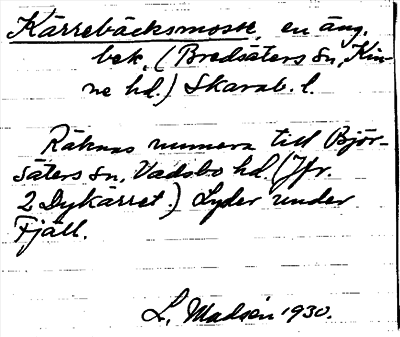 Kärrebäcksmosse, en äng.
bek. (Bredsäters sn, Kin-
ne hd.) Skarab. l.
Räknas numera till Björ-
säters sn, Vadsbo hd. (Jfr.
2 Dykärret.) Lyder under
Fjäll.
L. Madsén 1930.